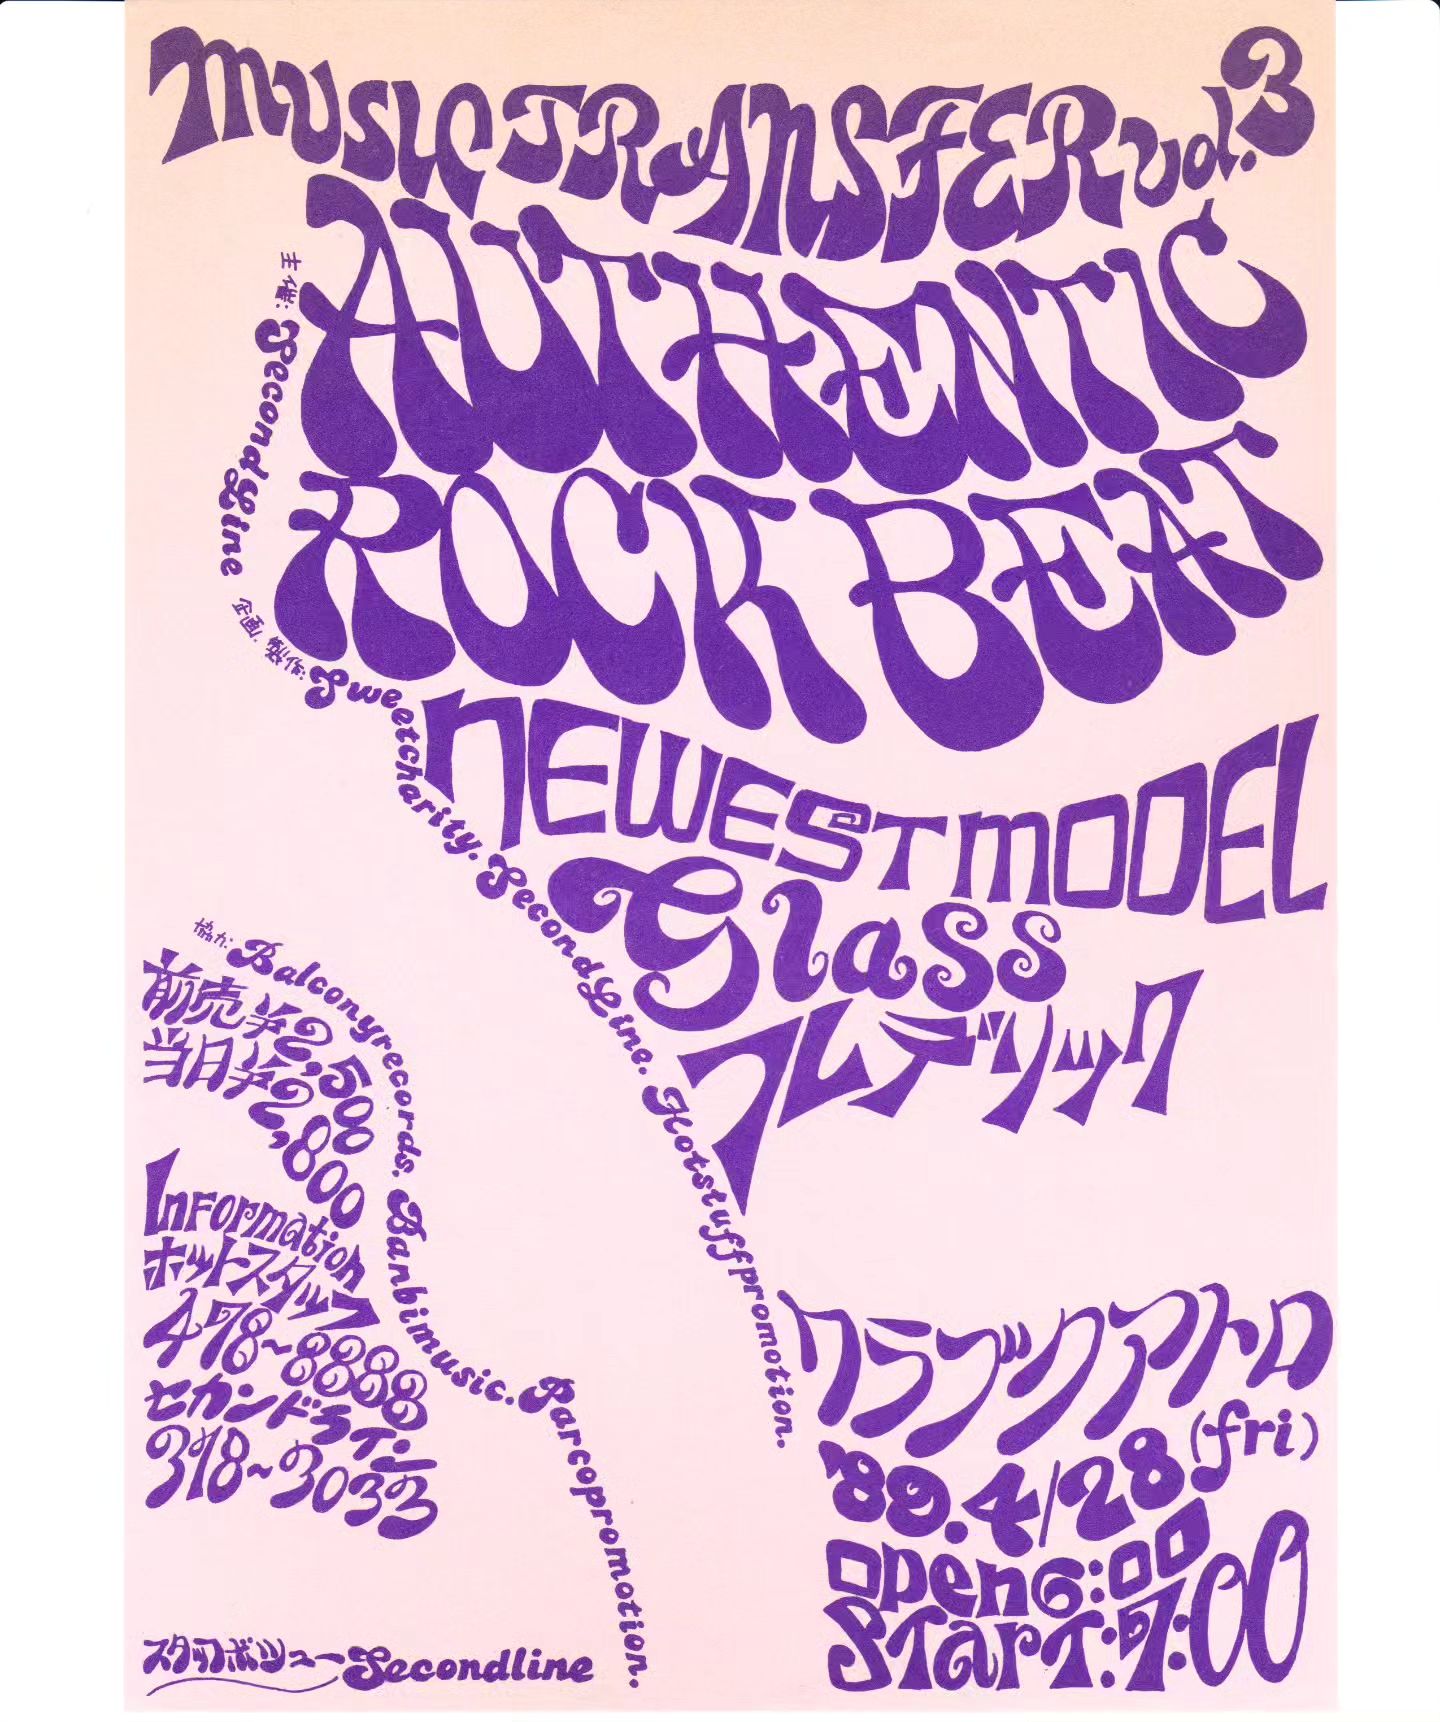 MUSIC TRANSFER vol.3
AUTHENTIC
ROCK BEAT
主催: Second Line
企画.制作: Sweetcharity. Second Line. Hotstuffpromotion.
NEWEST MODEL
Glass
フレデリック
協力: Balconyrecords. Banbimusic. Parcopromotion.
前売¥2,500
当日¥2,800
Information
ホットスタッフ
478~8888
セカンドライン
318~3033
クラブクアトロ
'89.4/28(fri)
open6:00
START:7:00
スタッフボシュー Secondline